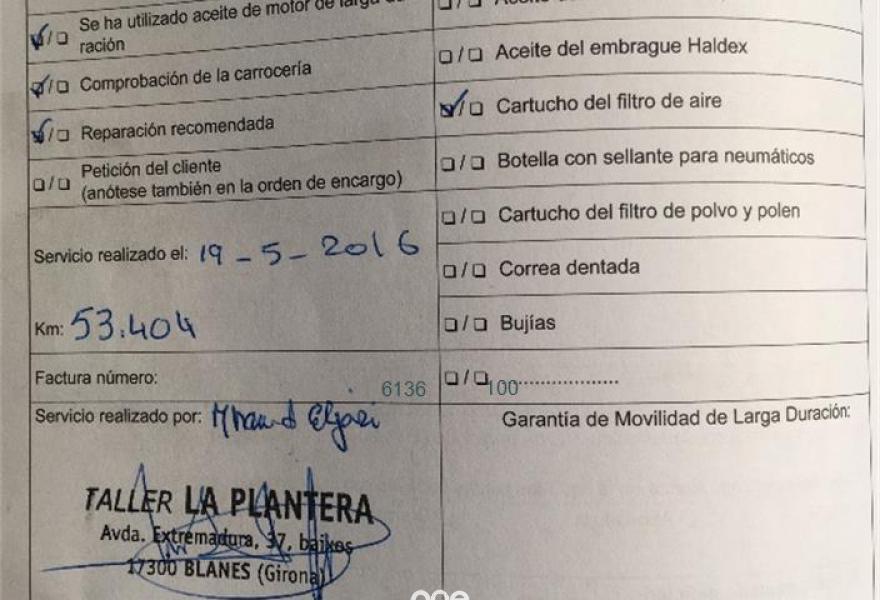 Se ha utilizado aceite de motor de larga du-
ración
Comprobación de la carrocería
Reparación recomendada
Petición del cliente
(anótese también en la orden de encargo)
Servicio realizado el: 19-5-2016
Km: 53.404
Factura número:
6136
Servicio realizado por:
TALLER LA PLANTERA
Avda. Extremadura, 37, baixos
17300 BLANES (Girona)
Aceite del embrague Haldex
Cartucho del filtro de aire
Botella con sellante para neumáticos
Cartucho del filtro de polvo y polen
Correa dentada
Bujías
100..................
Garantia de Movilidad de Larga Duración: